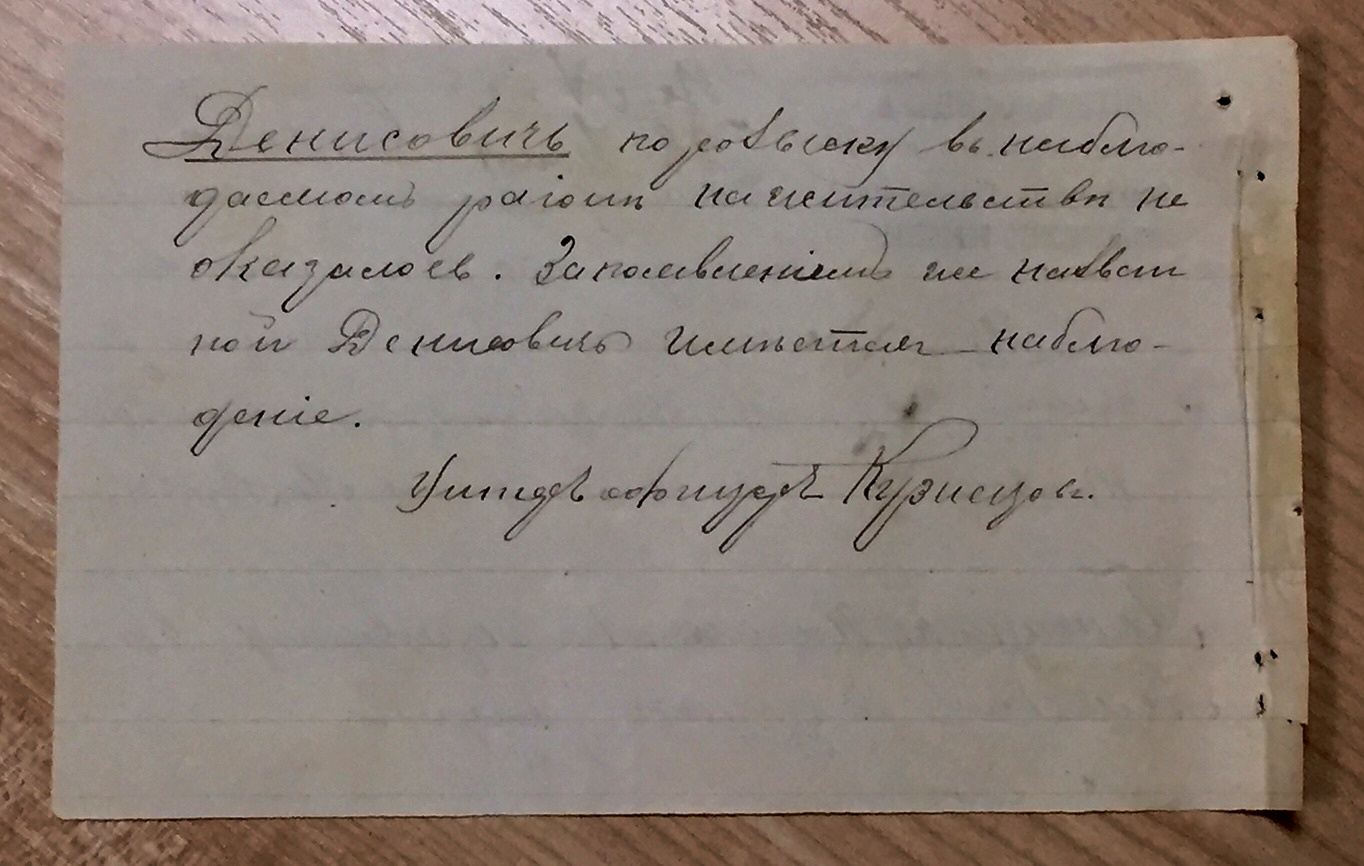 Денисовичъ по розыску въ наблю-
даемомъ раіонѣ на жительствѣ не
оказалось. За появленіемъ же назван
ной Денисовичъ имѣется наблю-
деніе.
Унтеръ офицеръ Кузнецовъ.